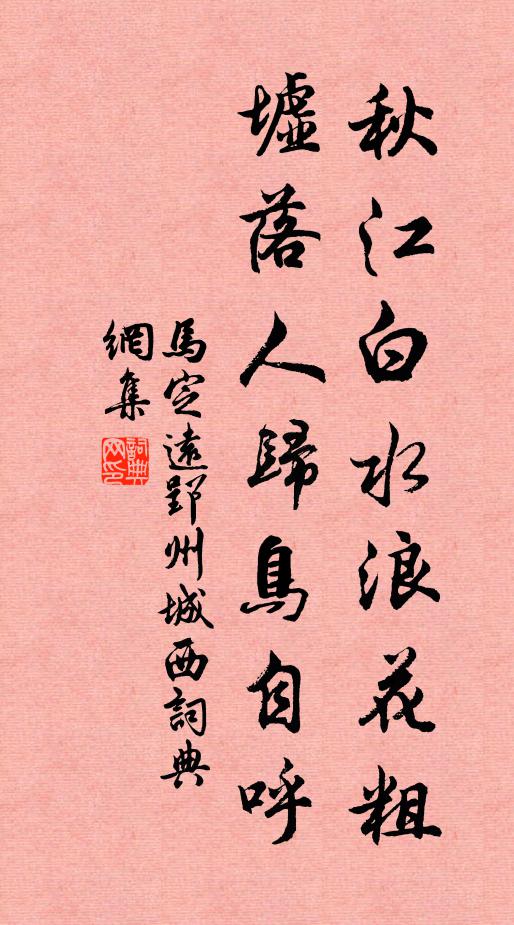 秋江白水浪花粗
墟落人歸鳥自呼
馬定遠郢州城西詞典
網集
詞典網印